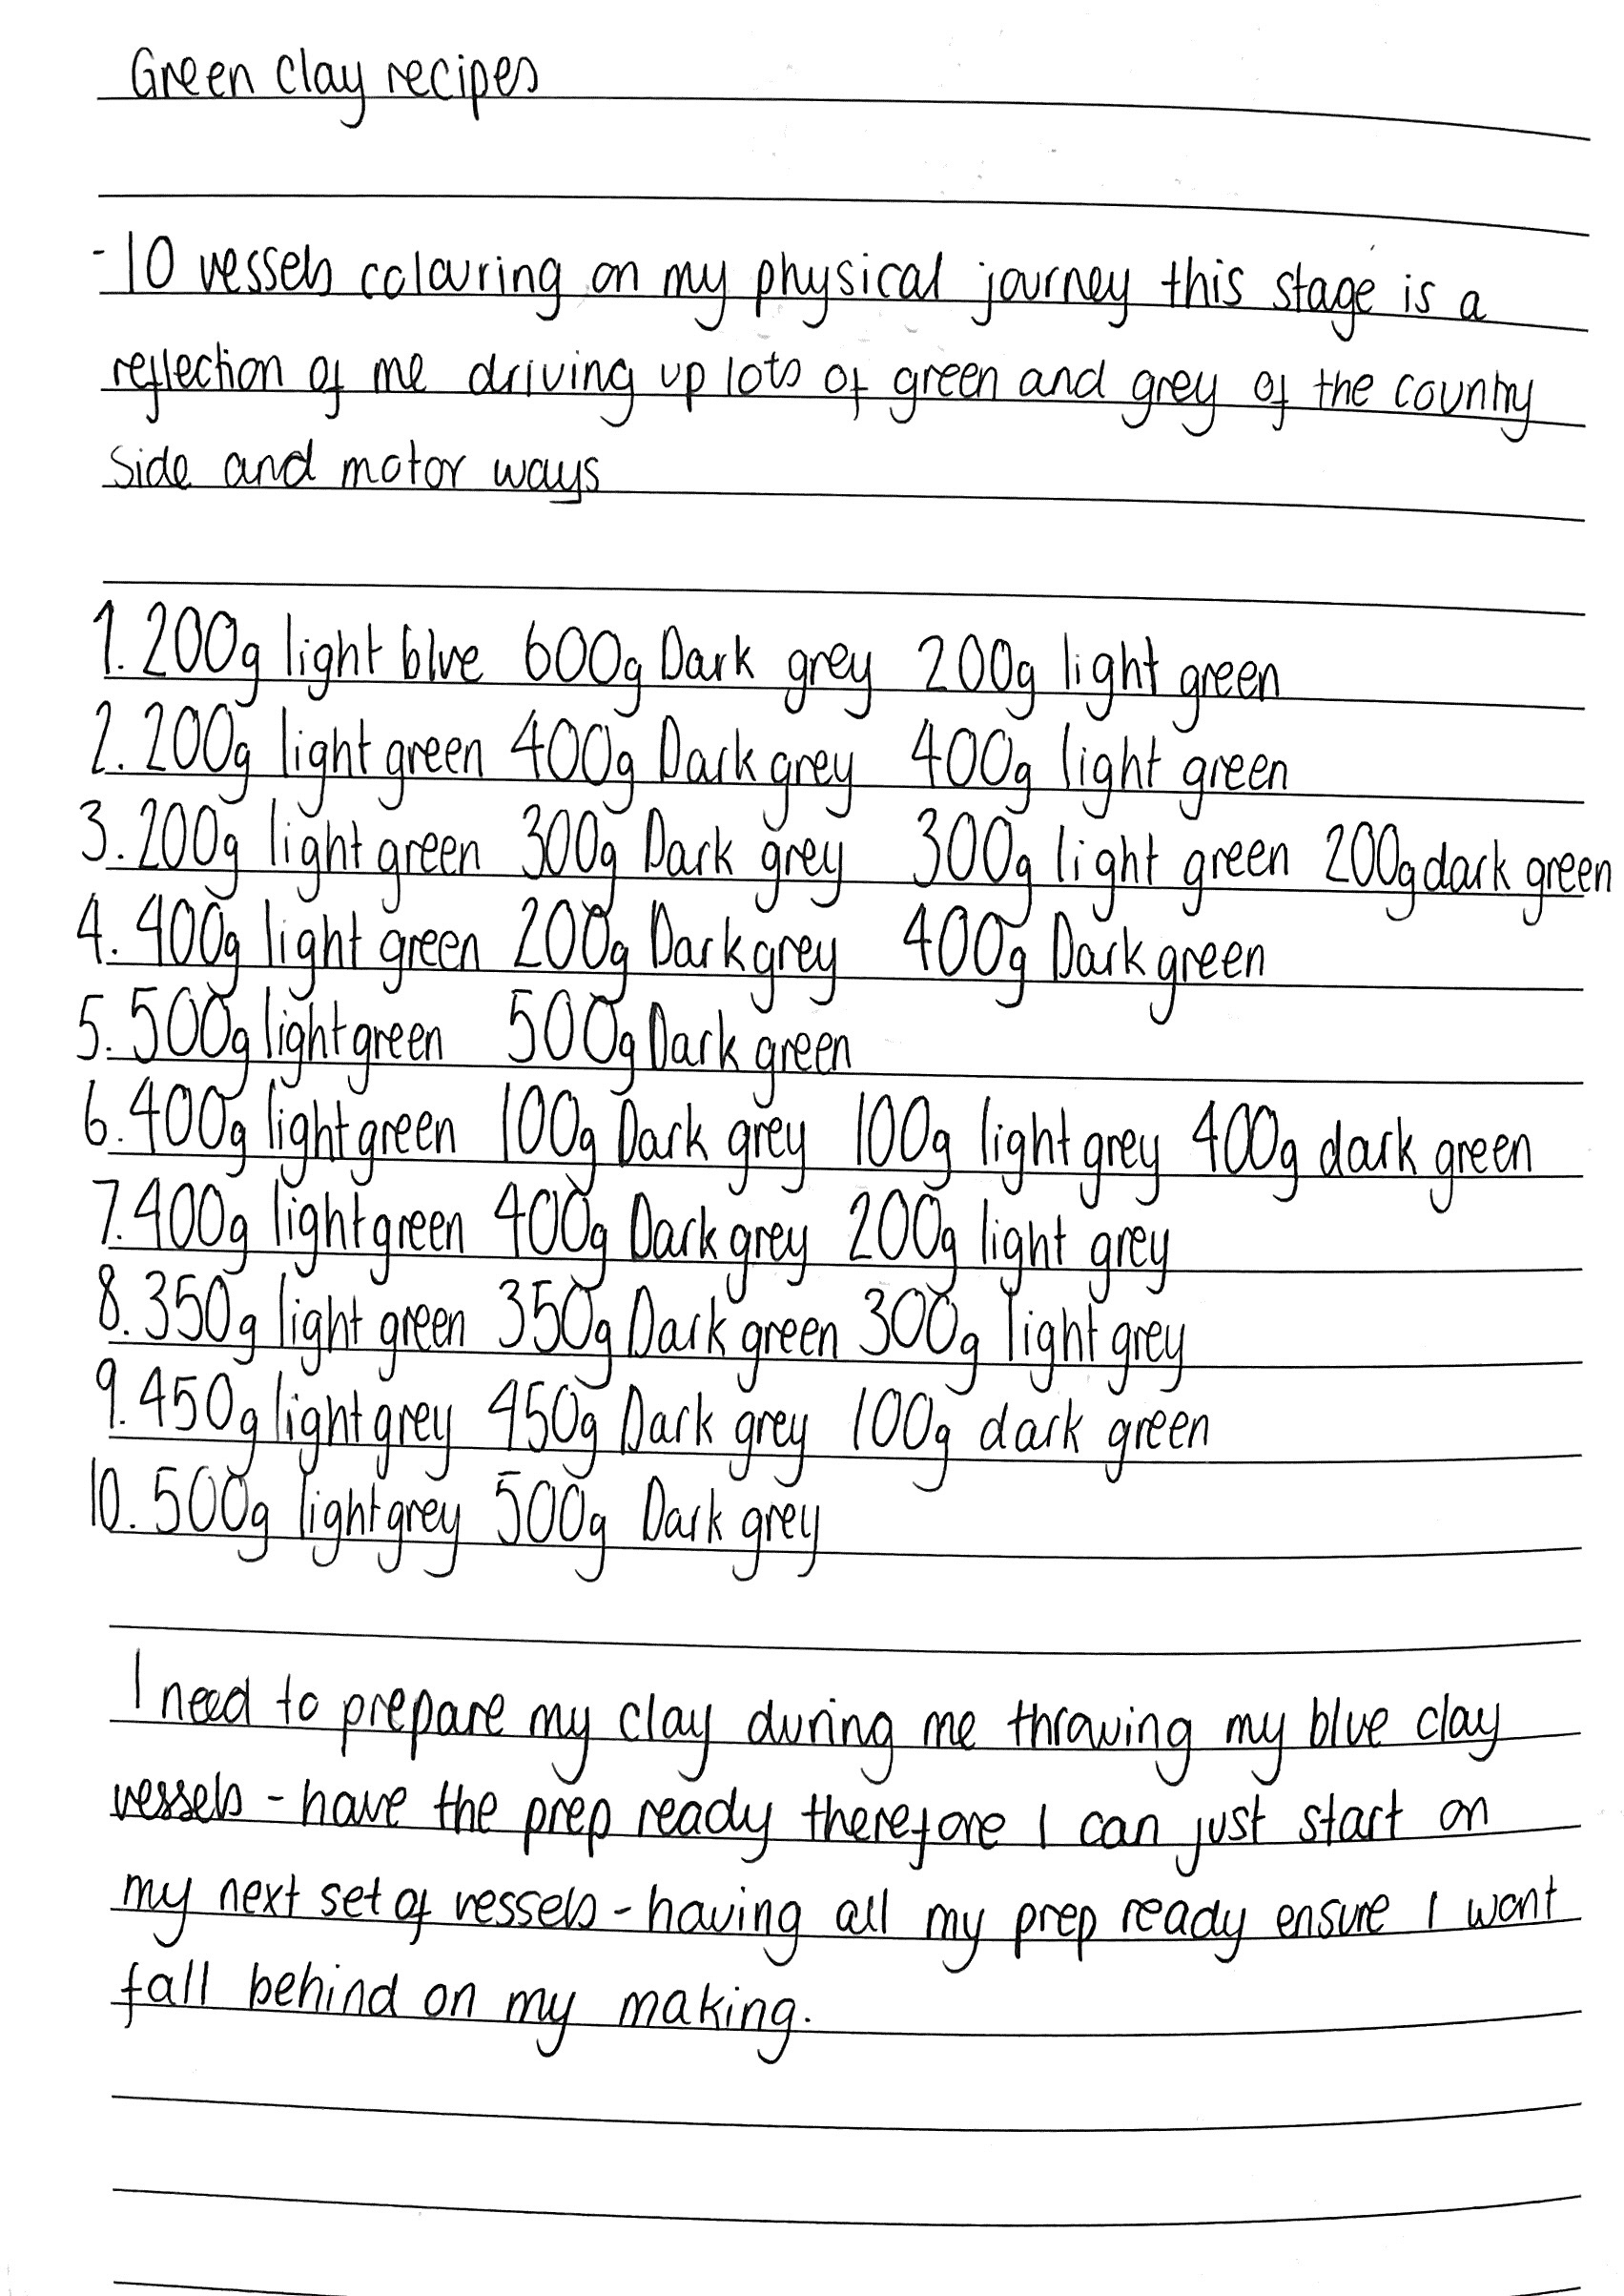 Green clay recipes
-10 vessels colouring on my physical journey this stage is a
reflection of me driving up lots of green and grey of the country
side and motor ways
1. 200g light blue 600g Dark grey 200g light green
2. 200g light green 400g Dark grey 400g light green
3. 200g light green 300g Dark grey 300g light green 200g dark green
4. 400g light green 200g Dark grey 400g Dark green
5. 500g light green 500g Dark green
6. 400g light green 100g Dark grey 100g light grey 400g dark green
7. 400g light green 400g Dark grey 200g light grey
8. 350g light green 350g Dark green 300g light grey
9. 450g light grey 450g Dark grey 100g dark green
10. 500g light grey 500g Dark grey
I need to prepare my clay during me throwing my blue clay
vessels - have the prep ready therefore I can just start on
my next set of vessels - having all my prep ready ensure I wont
fall behind on my making.